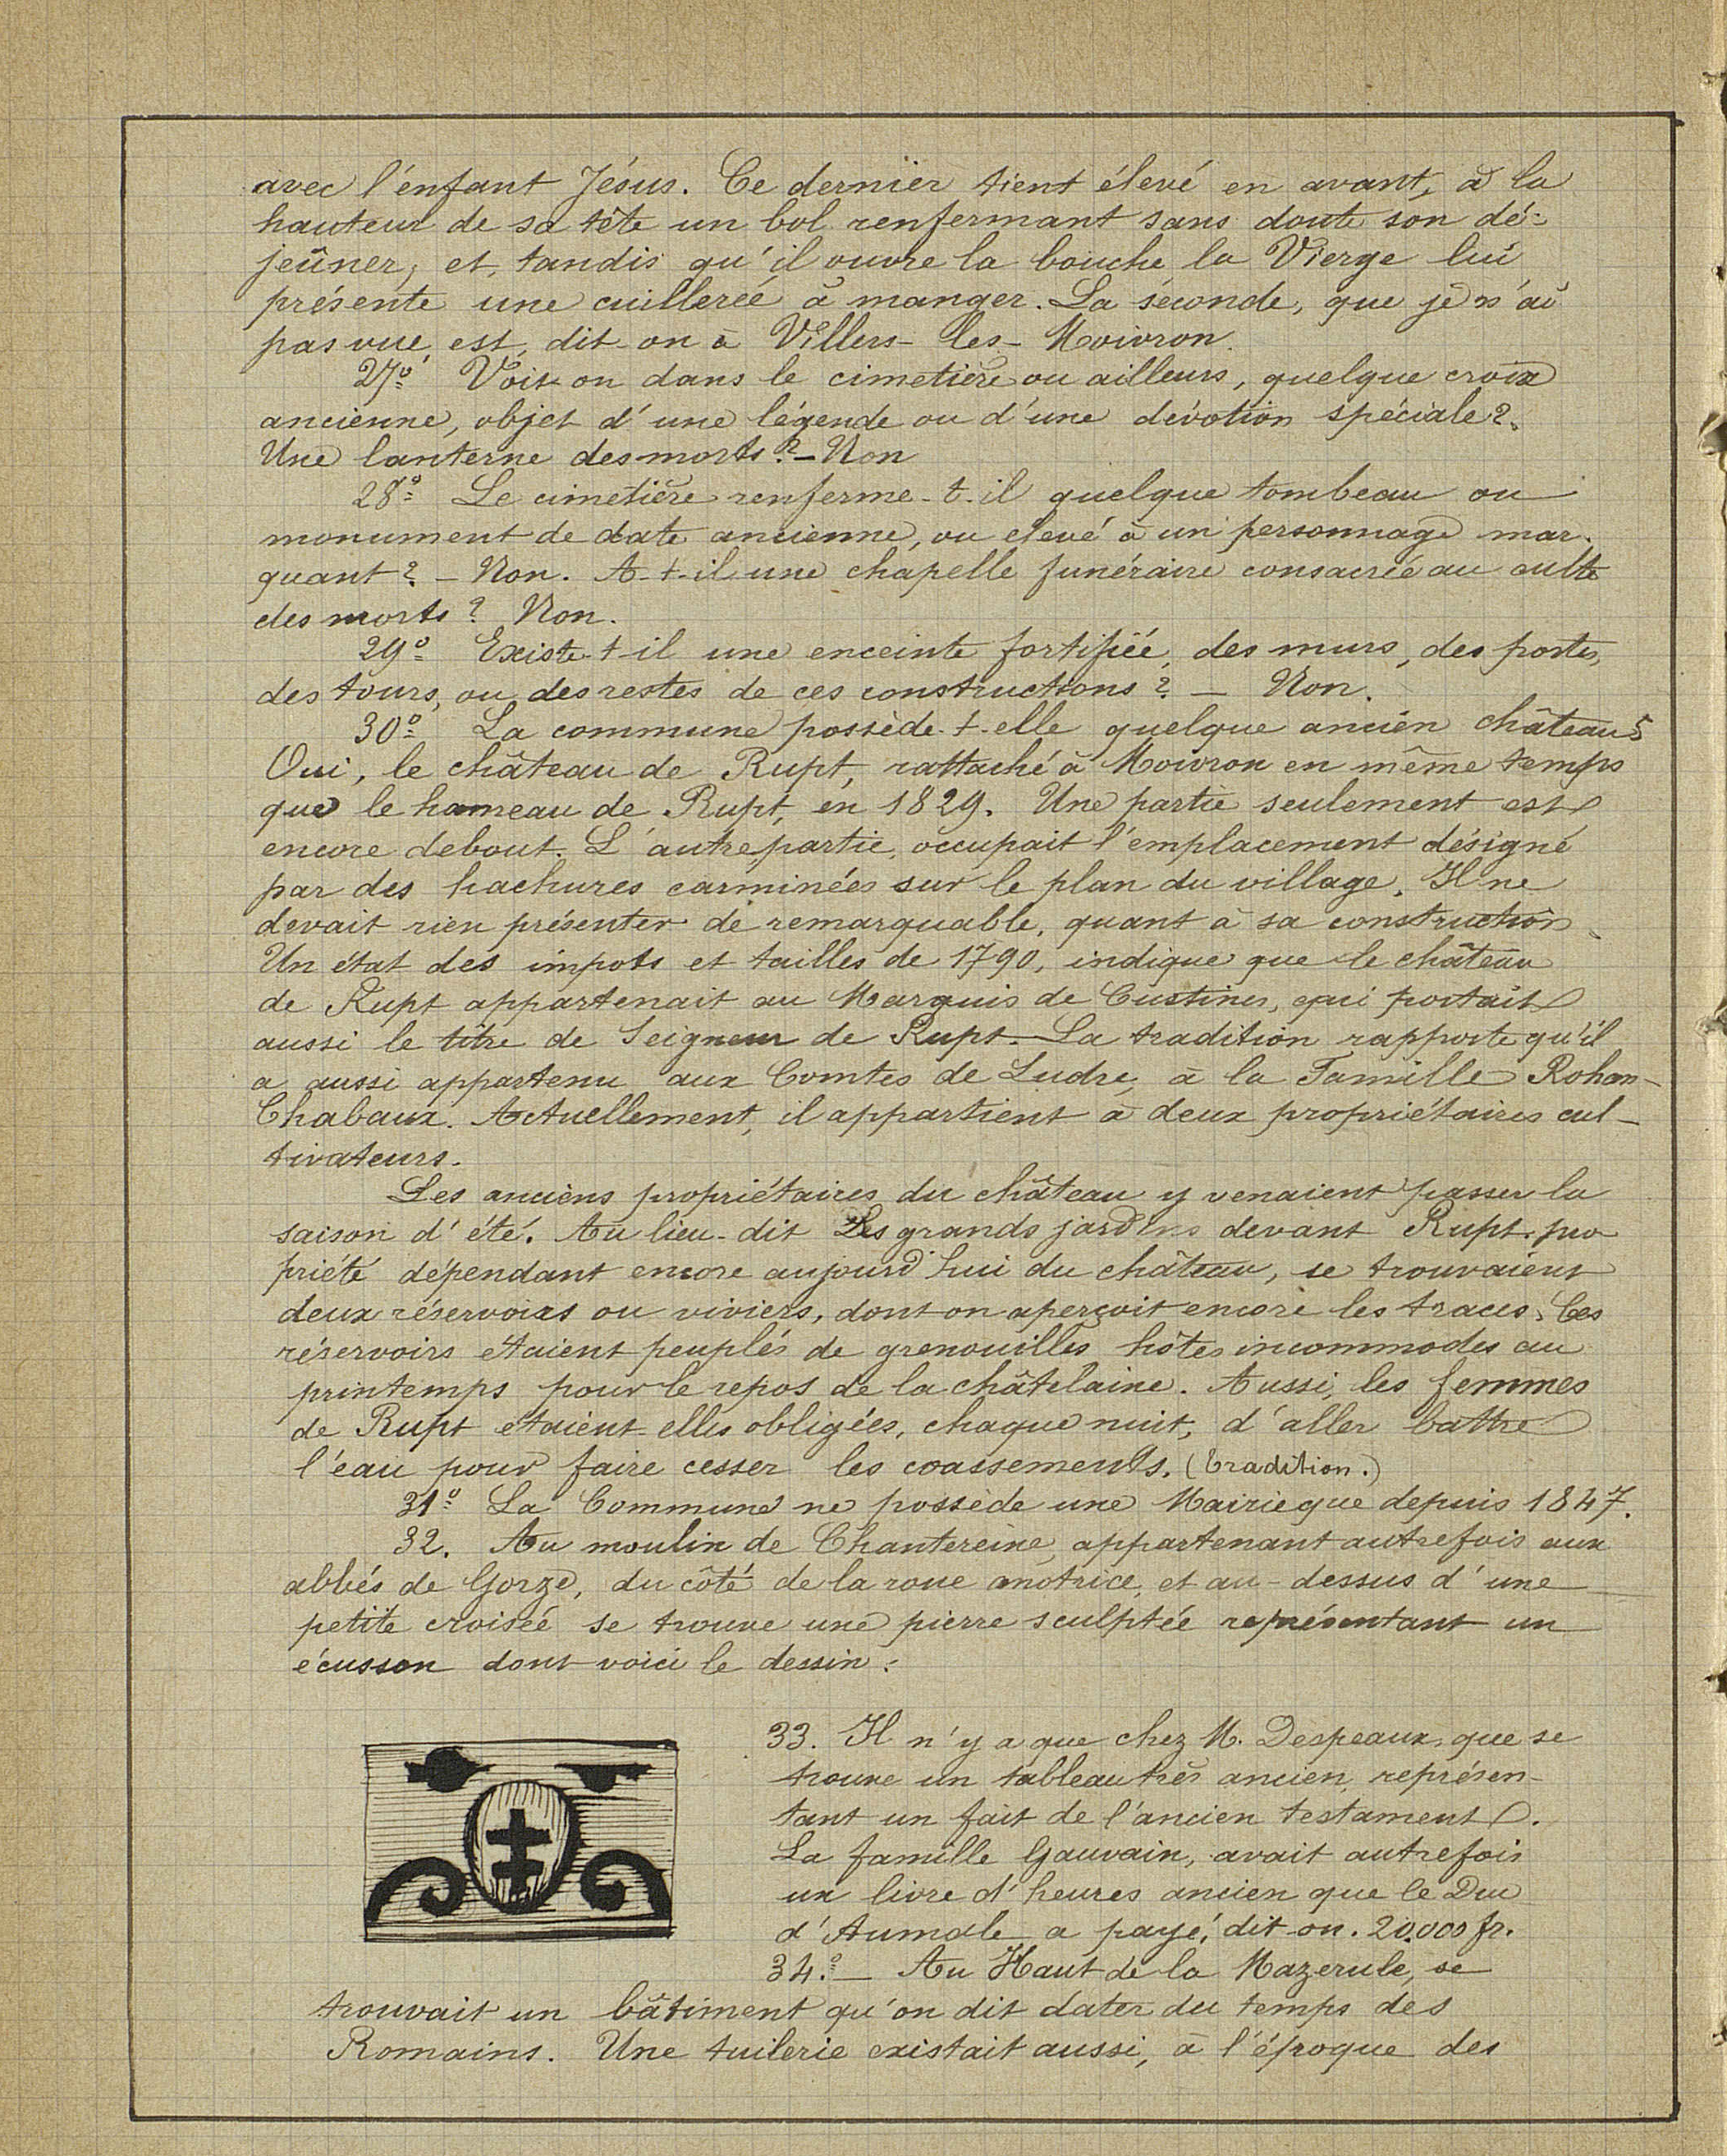 avec l'enfant Jésus. Ce dernier tient élevé en avant, à la
hauteur de sa tête un bol renfermant sans doute son dé-
jeûner, et, tandis qu'il ouvre la bouche la Vierge lui
présente une cuillerée à manger. La seconde, que je n'ai
pas vue, est, dit-on à Villers-les-Moivron.
27º Voit-on dans le cimetière ou ailleurs, quelque croix
ancienne, objet d'une légende ou d'une dévotion spéciale?
Une lanterne des morts? - Non
28º Le cimetière renferme-t-il quelque tombeau ou
monument de date ancienne, ou élevé à un personnage mar-
quant? - Non. A-t-il une chapelle funéraire consacrée au culte
des morts? Non.
29º Existe-t-il une enceinte fortifiée, des murs, des portes,
des tours, ou des restes de ces constructions? - Non.
30º La commune possède-t-elle quelque ancien château?
Oui, le château de Rupt, rattaché à Moivron en même temps
que le hameau de Rupt, en 1829. Une partie seulement est
encore debout. L'autre partie, occupait l'emplacement désigné
par des hachures carminées sur le plan du village. Il ne
devait rien présenter de remarquable, quant à sa construction.
Un état des impots et tailles de 1790, indique que le château
de Rupt appartenait au Marquis de Custines, qui portait
aussi le titre de Seigneur de Rupt. La tradition rapporte qu'il
a aussi appartenu aux Comtes de Ludre, à la Famille Rohan-
Chabaux. Actuellement, il appartient à deux propriétaires cul-
tivateurs.
Les anciens propriétaires du château y venaient passer la
saison d'été. Au lieu-dit Les grands jardins devant Rupt, pro
priété dépendant encore aujourd'hui du château, se trouvaient
deux réservoirs ou viviers, dont on aperçoit encore les traces. Ces
réservoirs étaient peuplés de grenouilles hôtes incommodes au
printemps pour le repos de la châtelaine. Aussi, les femmes
de Rupt étaient-elles obligées, chaque nuit, d'aller battre
l'eau pour faire cesser les coassements. (Tradition.)
31º La Commune ne possède une Mairie que depuis 1847.
32. Au moulin de Chantereine, appartenant autrefois aux
abbés de Gorze, du côté de la roue motrice, et au-dessus d'une
petite croisée se trouve une pierre sculptée représentant un
écusson dont voici le dessin:
33. Il n'y a que chez M. Despeaux, que se
trouve un tableau très ancien, représen-
tant un fait de l'ancien testament.
La famille Gauvain, avait autrefois
un livre d'heures ancien que le Duc
d'Aumale a payé, dit-on. 20.000 fr.
34.º - Au Haut de la Mazerule, se
trouvait un bâtiment qu'on dit dater du temps des
Romains. Une tuilerie existait aussi, à l'époque des